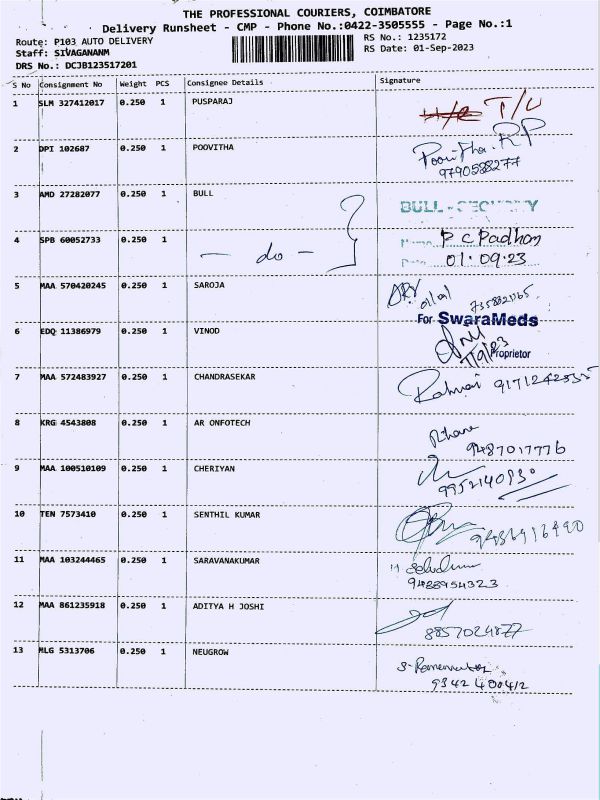 THE PROFESSIONAL COURIERS, COIMBATORE
Delivery Runsheet - CMP - Phone No.:0422-3505555 - Page No.:1
Route: P103 AUTO DELIVERY
RS No.: 1235172
Staff: SIVAGANANM
RS Date: 01-Sep-2023
DRS No.: DCJB123517201
S No Consignment No Weight PCS Consignee Details Signature
1 SLM 327412017 0.250 1 PUSPARAJ
T/U
2 DPI 102687 0.250 1 POOVITHA
RP
9790588277
3 AMD 27282077 0.250 1 BULL
BULL - SECURITY
4 SPB 60052733 0.250 1 - do -
P C Padhan
01.09.23
5 MAA 570420245 0.250 1 SAROJA
For SwaraMeds
6 EDQ 11386979 0.250 1 VINOD
1/9/23
Proprietor
7 MAA 572483927 0.250 1 CHANDRASEKAR
8 KRG 4543808 0.250 1 AR ONFOTECH
9487017776
9 MAA 100510109 0.250 1 CHERIYAN
9952140930
10 TEN 7573410 0.250 1 SENTHIL KUMAR
11 MAA 103244465 0.250 1 SARAVANAKUMAR
9488954323
12 MAA 861235918 0.250 1 ADITYA H JOSHI
8857024877
13 MLG 5313706 0.250 1 NEUGROW
9342400412